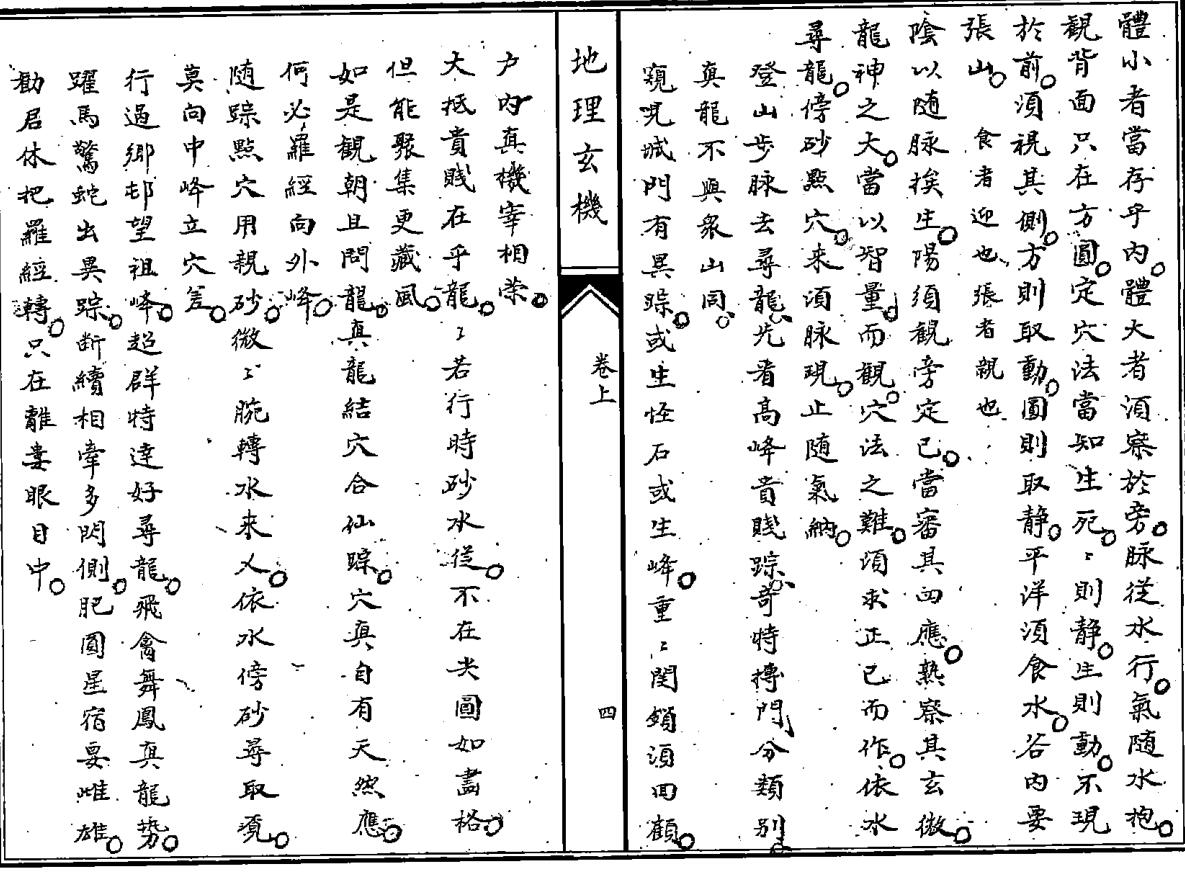 體小者當存乎內體大者須察於旁脉從水行氣隨水抱
觀背面只在方圓定穴法當知生死〻則静生則動不現
於前須視其側方則取動圓則取静平洋須食水谷内要
張山食者迎也張者親也
陰以随脉挨生陽須觀旁定已當審其四應熟察其玄微
龍神之大當以智量而觀穴法之難須求正已而作依水
尋龍傍砂點穴来須脉現止随氣納
登山步脉去尋龍先看高峰貴賤踪奇特摶門分類别
真龍不與衆山同
窺見城門有異踪或生怪石或生峰重〻関鎖須回顧
地理玄機
卷上
四
户内真機宰相榮
大抵貴賤在乎龍〻若行時砂水從不在尖圓如畵格
但能聚集更藏風
如是觀朝且問龍真龍結穴合仙踪穴真自有天然應
何必羅經向外峰
随踪點穴用親砂微〻腕轉水来乂依水傍砂尋取覔
莫向中峰立穴差
行過鄉邨望祖峰超群特達好尋龍飛禽舞鳳真龍势
躍馬驚蛇出異踪断續相牽多閃側肥圓星宿要雌雄
勸君休把羅經轉只在離婁眼目中